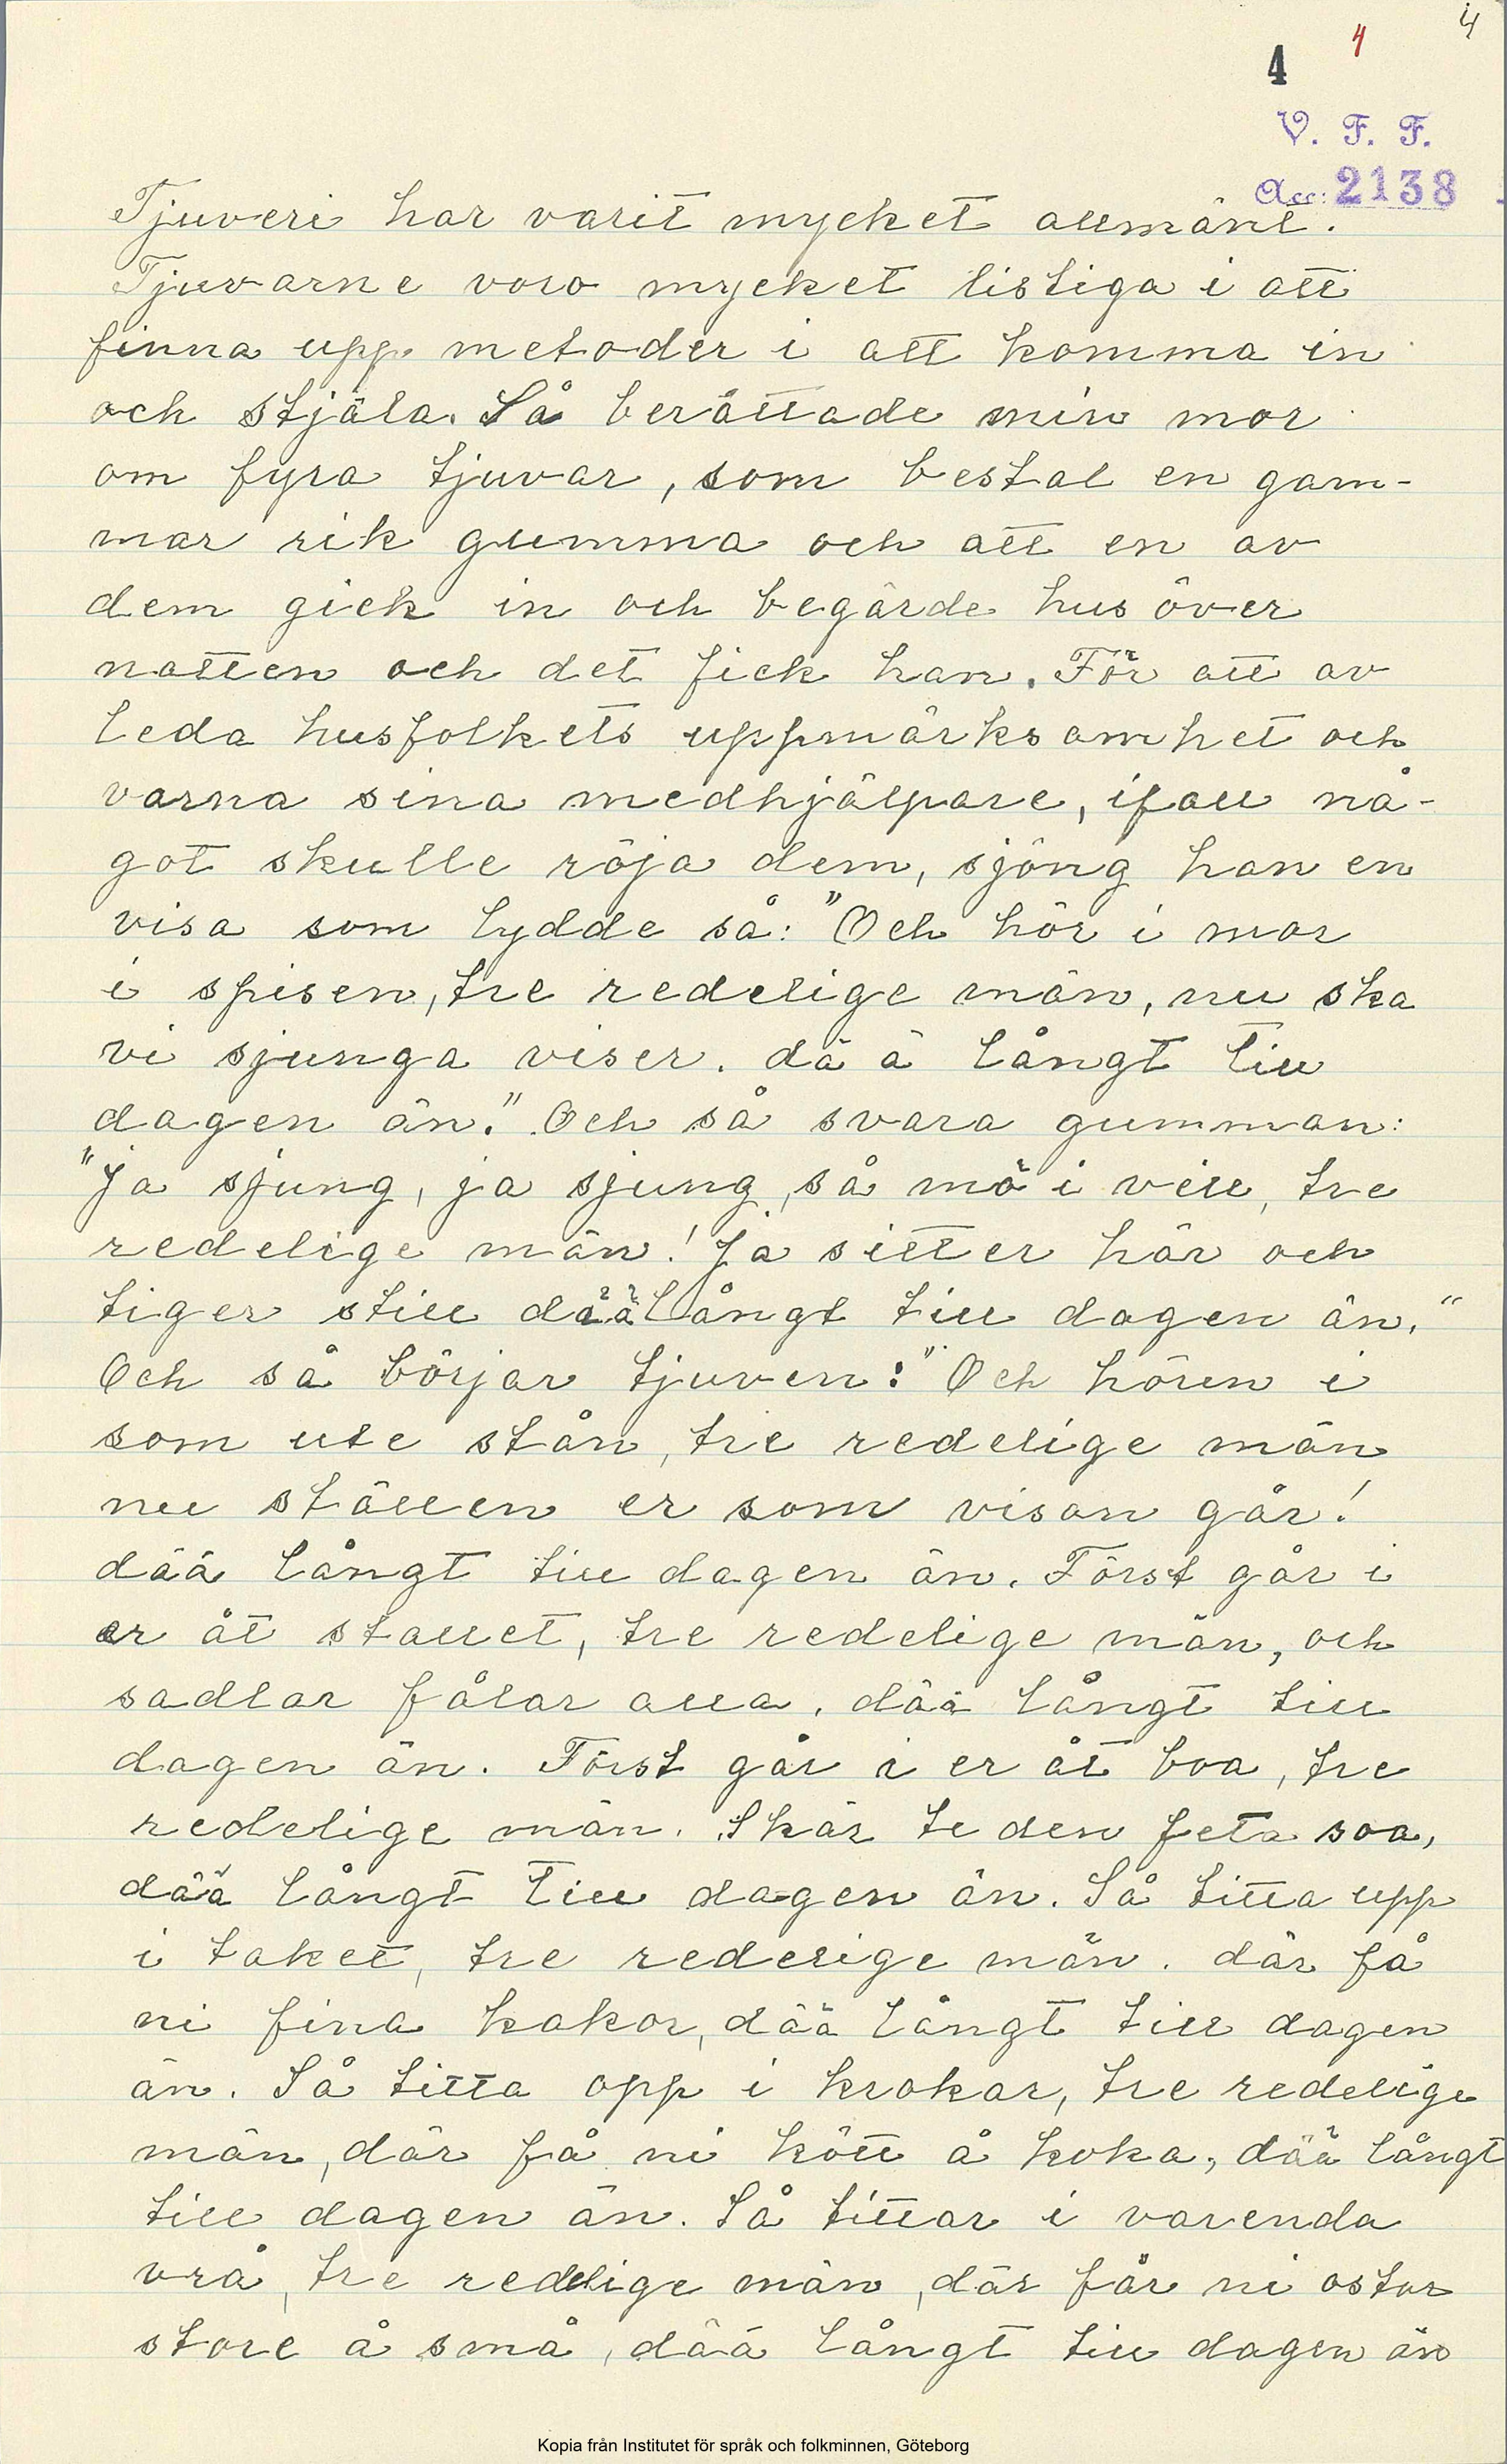 4
4
4
V. F. F.
Acc: 2138
Tjuveri har varit mycket allmänt.
Tjuvarne voro mycket listiga i att
finna upp metoder i att komma in
och stjäla. Så berättade min mor
om fyra tjuvar, som bestal en gam-
mar rik gumma och att en av
dem gick in och begärde hus över
natten och det fick han. För att av
leda husfolkets uppmärksamhet och
varna sina medhjälpare, ifall nå-
got skulle röja dem, sjöng han en
visa som lydde så: "Och hör i mor
i spisen, tre redelige män, nu ska
vi sjunga viser. dä ä långt till
dagen än." Och så svara gumman:
"Ja sjung, ja sjung, så mö i vill, tre
redelige män! Ja sitter här och
tiger still dä ä långt till dagen än."
Och så börjar tjuven: "Och hören i
som ute stån, tre redelige män
nu ställen er som visan går!
dää långt till dagen än. Först går i
er åt stallet, tre redelige män, och
sadlar fålar alla. dää långt till
dagen än. Först går i er åt boa, tre
redelige män. Skär te den feta soa,
dää långt till dagen än. Så titta upp
i taket, tre redelige män. där få
ni fina kakor, dää långt till dagen
än. Så titta opp i krokar, tre redelige
män, där få ni kött å koka, dää långt
till dagen än. Så tittar i varenda
vrå, tre redelige män, där får ni ostar
store å små, dää långt till dagen än
Kopia från Institutet för språk och folkminnen, Göteborg